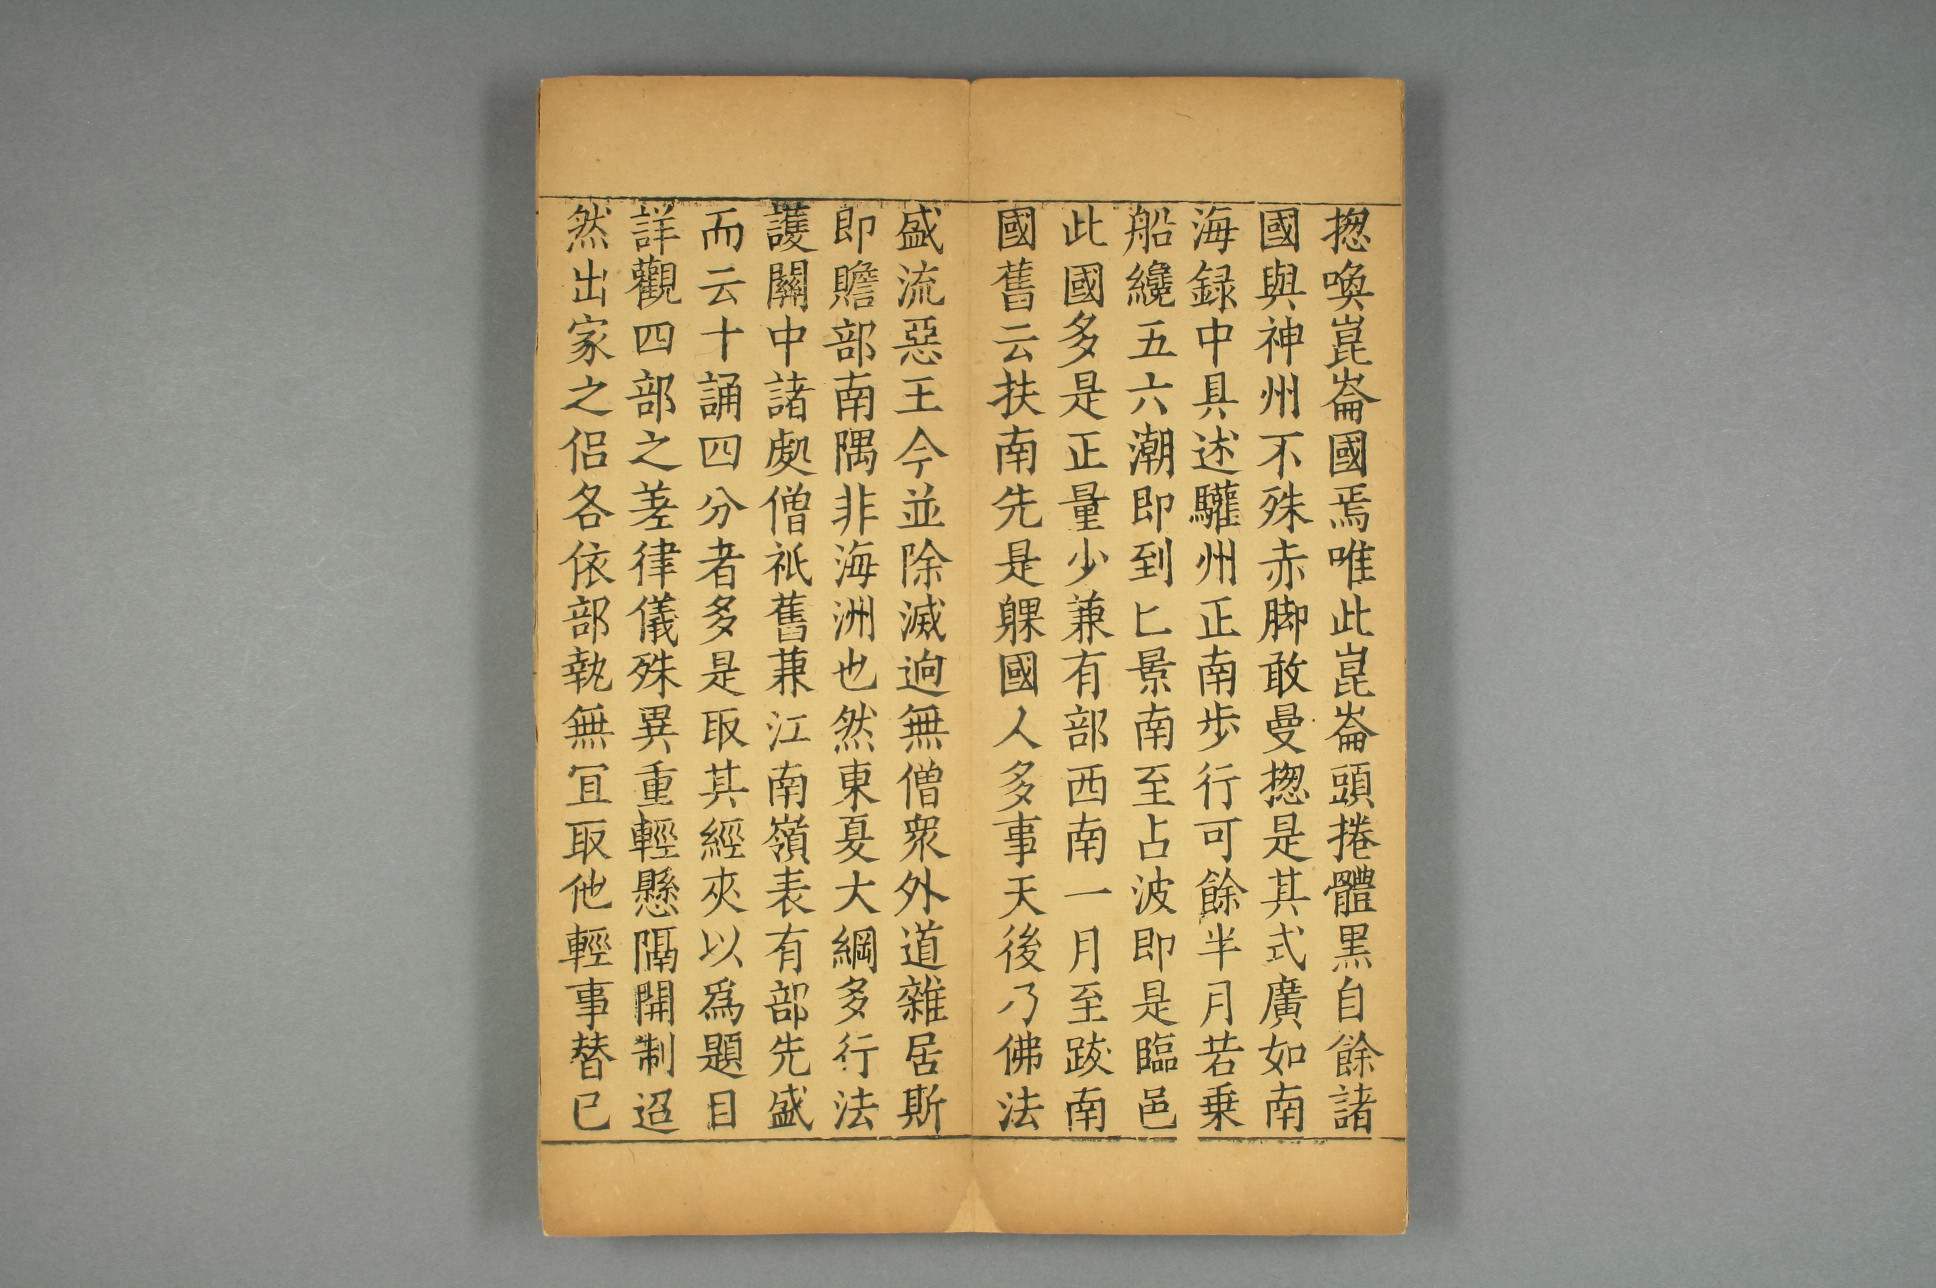 揔喚崑崙國焉唯此崑崙頭捲體黑自餘諸
國與神州不殊赤脚敢曼揔是其式廣如南
海録中具述驩州正南歩行可餘半月若乗
船纔五六潮即到匕景南至占波即是臨邑
此國多是正量少兼有部西南一月至跋南
國舊云扶南先是躶國人多事天後乃佛法
盛流惡王今並除滅逈無僧衆外道雜居斯
即贍部南隅非海洲也然東夏大綱多行法
護關中諸處僧祇舊兼江南嶺表有部先盛
而云十誦四分者多是取其經夾以爲題目
詳觀四部之差律儀殊異重輕懸隔開制迢
然出家之侣各依部執無冝取他輕事替已